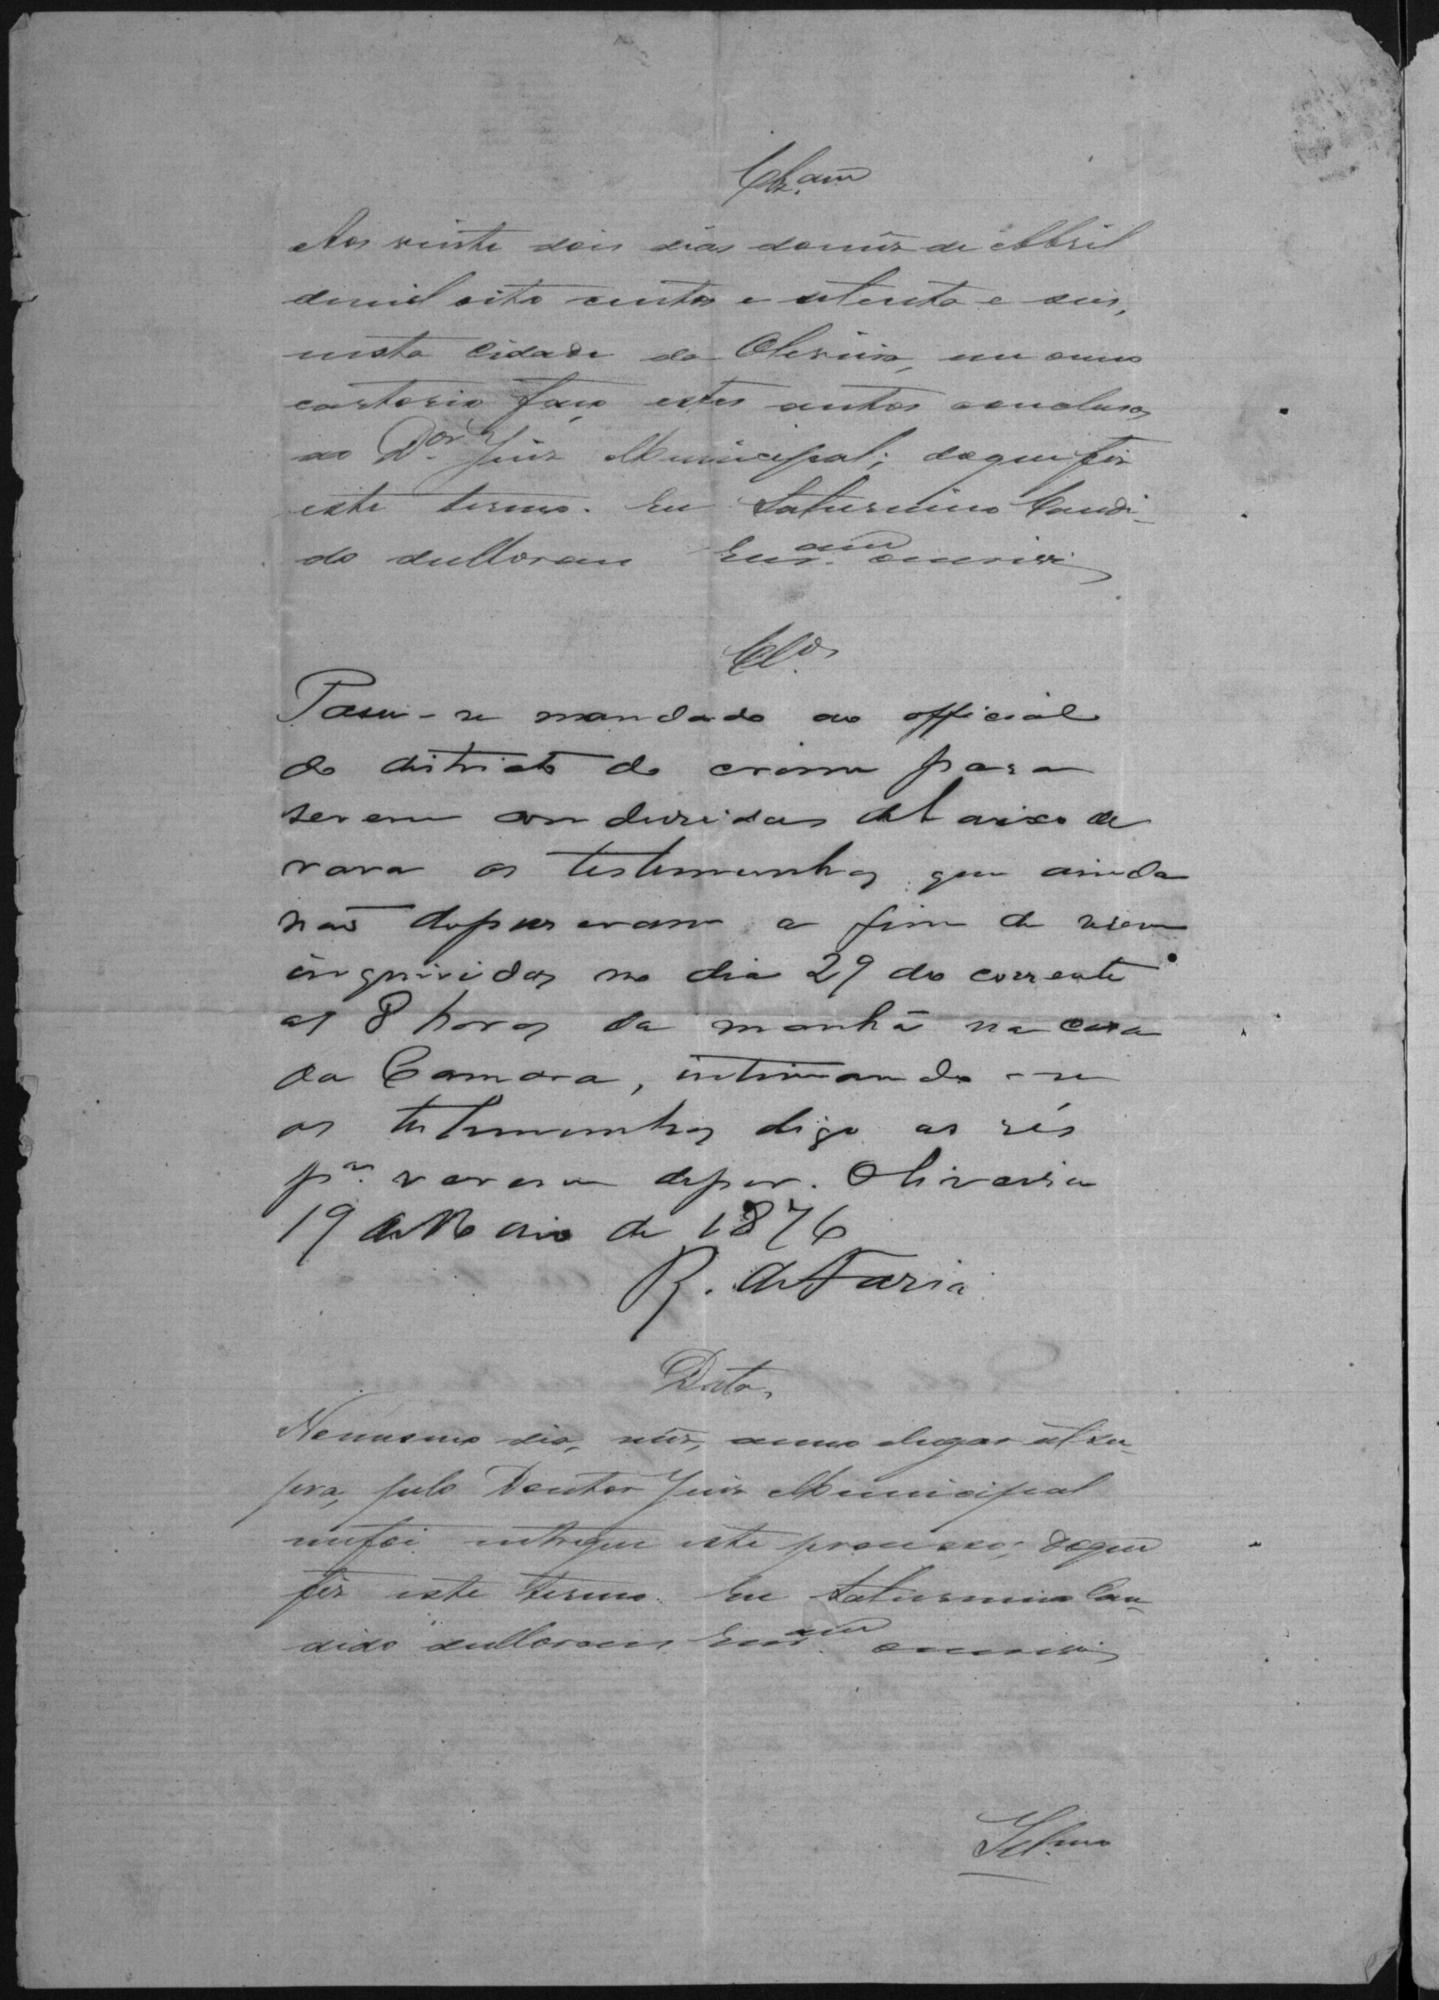 Clz.am
Aos vinte dois dias do mês de Abril
de mil oito centos e setenta e seis,
nesta Cidade da Oliveira, em meu
cartorio faço estes autos conclusos
ao Dor. Juiz Municipal; do que fiz
este termo. Eu Saturnino Candi-
do
Clos
Passe-se mandado ao official
do districto do crime para
serem conduzidas debaixo de
vara as testemunhas que ainda
não depuseram a fim de serem
inqueridas no dia 29 do corrente
as 8 horas da manhã na casa
da Camara, intimando-se
as testemunhas digo as rés
pa. verem depor. Oliveira
19 de Maio de 1876
R. de Faria
Data
No mesmo dia, mês, anno e lugar ut su-
pra, pelo Doutor Juiz Municipal
me foi entregue este processo; do que
fiz este termo. Eu Saturnino Can-
dido